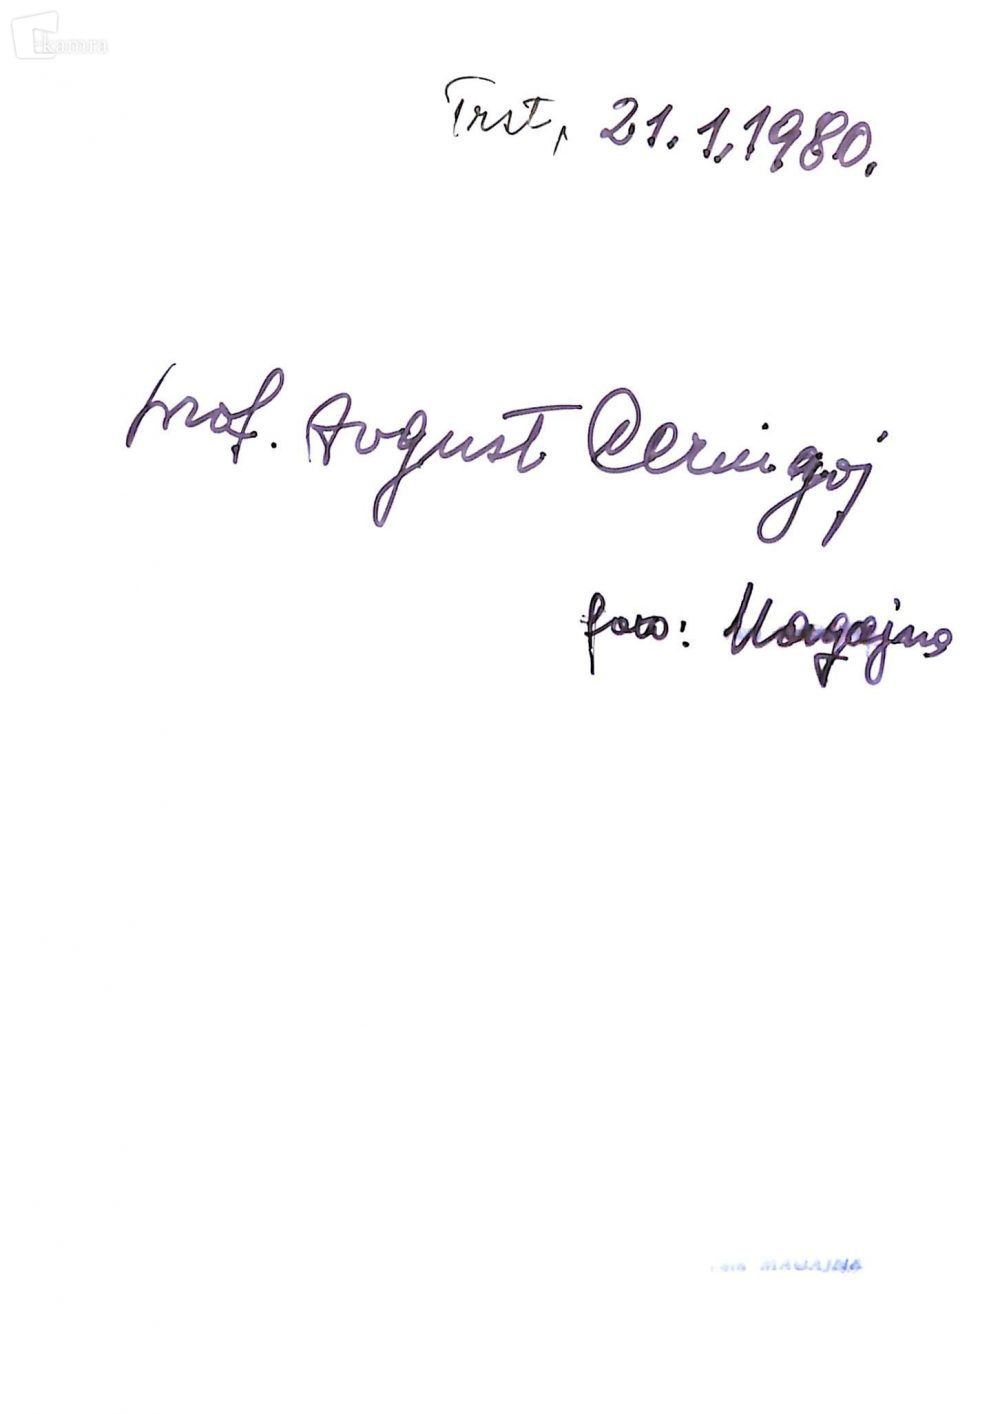 kamra
Trst, 21.1.1980.
prof. Avgust Černigoj
foto: Magajna
MAGAJNA